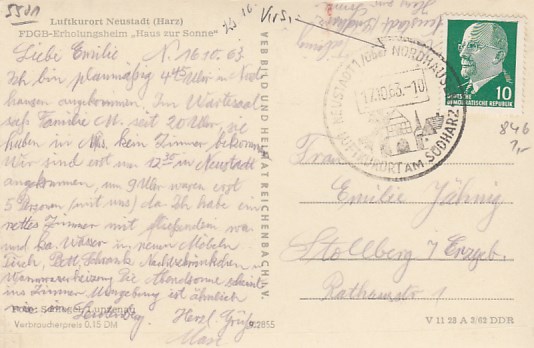 5501
Luftkurort Neustadt (Harz)
FDGB-Erholungsheim „Haus zur Sonne“
Liebe Emilie N. 16.10.63
Ich bin planmäßig 4 Uhr in Nord-
hausen angekommen. Im Wartesaal
saß Familie M. seit 20 Uhr, sie
haben in Nhs. kein Zimmer bekommen
Wir sind erst um 12 in Neustadt
angekommen, um 9 Uhr waren erst
5 Personen (mit uns) da. Ich habe ein
nettes Zimmer mit fließendem warm
und ka. Wasser in neuen Möbeln
Tisch, Bett, Schrank, Nachtschränkchen
Warmwasserheizung. Die Abendsonne scheint
ins Zimmer. Umgebung ist ähnlich
Foto:
Verbraucherpreis 0,15 DM
Herzl. Grüße
Max
VEB BILD UND HEIMAT REICHENBACH I. V.
NEUSTADT ü/üb NORDHAUSEN
17.10.63.-10
LUFTKURORT AM SÜDHARZ
10
DEUTSCHE DEMOKRATISCHE REPUBLIK
846
Frau
Emilie Jähnig
Stollberg / Erzgeb.
Rathausstr. 1
V 11 23 A 3/62 DDR